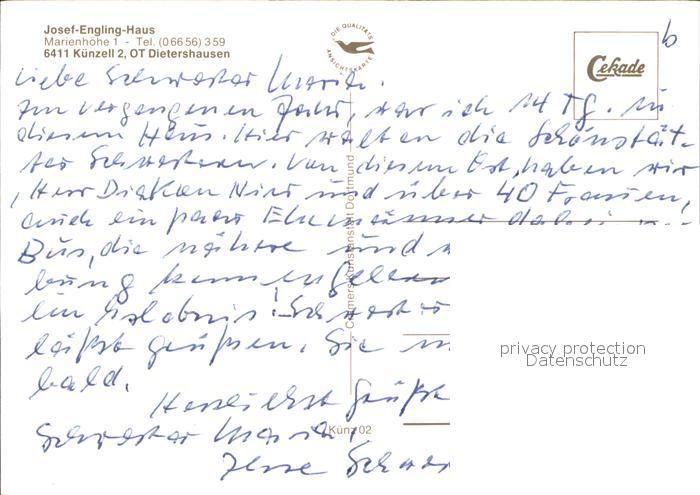 Josef-Engling-Haus
Marienhöhe 1 - Tel. (06656) 359
6411 Künzell 2, OT Dietershausen
DIE QUALITÄTS
ANSICHTSKARTE
Cekade
b
Liebe Schwester Maria.
Im vergangenen Jahr, war ich 14 Tg. in
diesem Haus. Hier walten die Schönstät-
ter Schwestern. Von diesem Ort, haben wir
, Herr Diakon und über 40 Frauen,
auch ein paar Ehemänner dabei
Bus, die nähere und
bung kennengelernt
ein Erlebnis! Schwester
läßt grüßen. Sie
bald.
Herzlichst Grüßt
Schwester Maria,
Ihre
Cramers Kunstanstalt Dortmund
Künz 02
privacy protection
Datenschutz